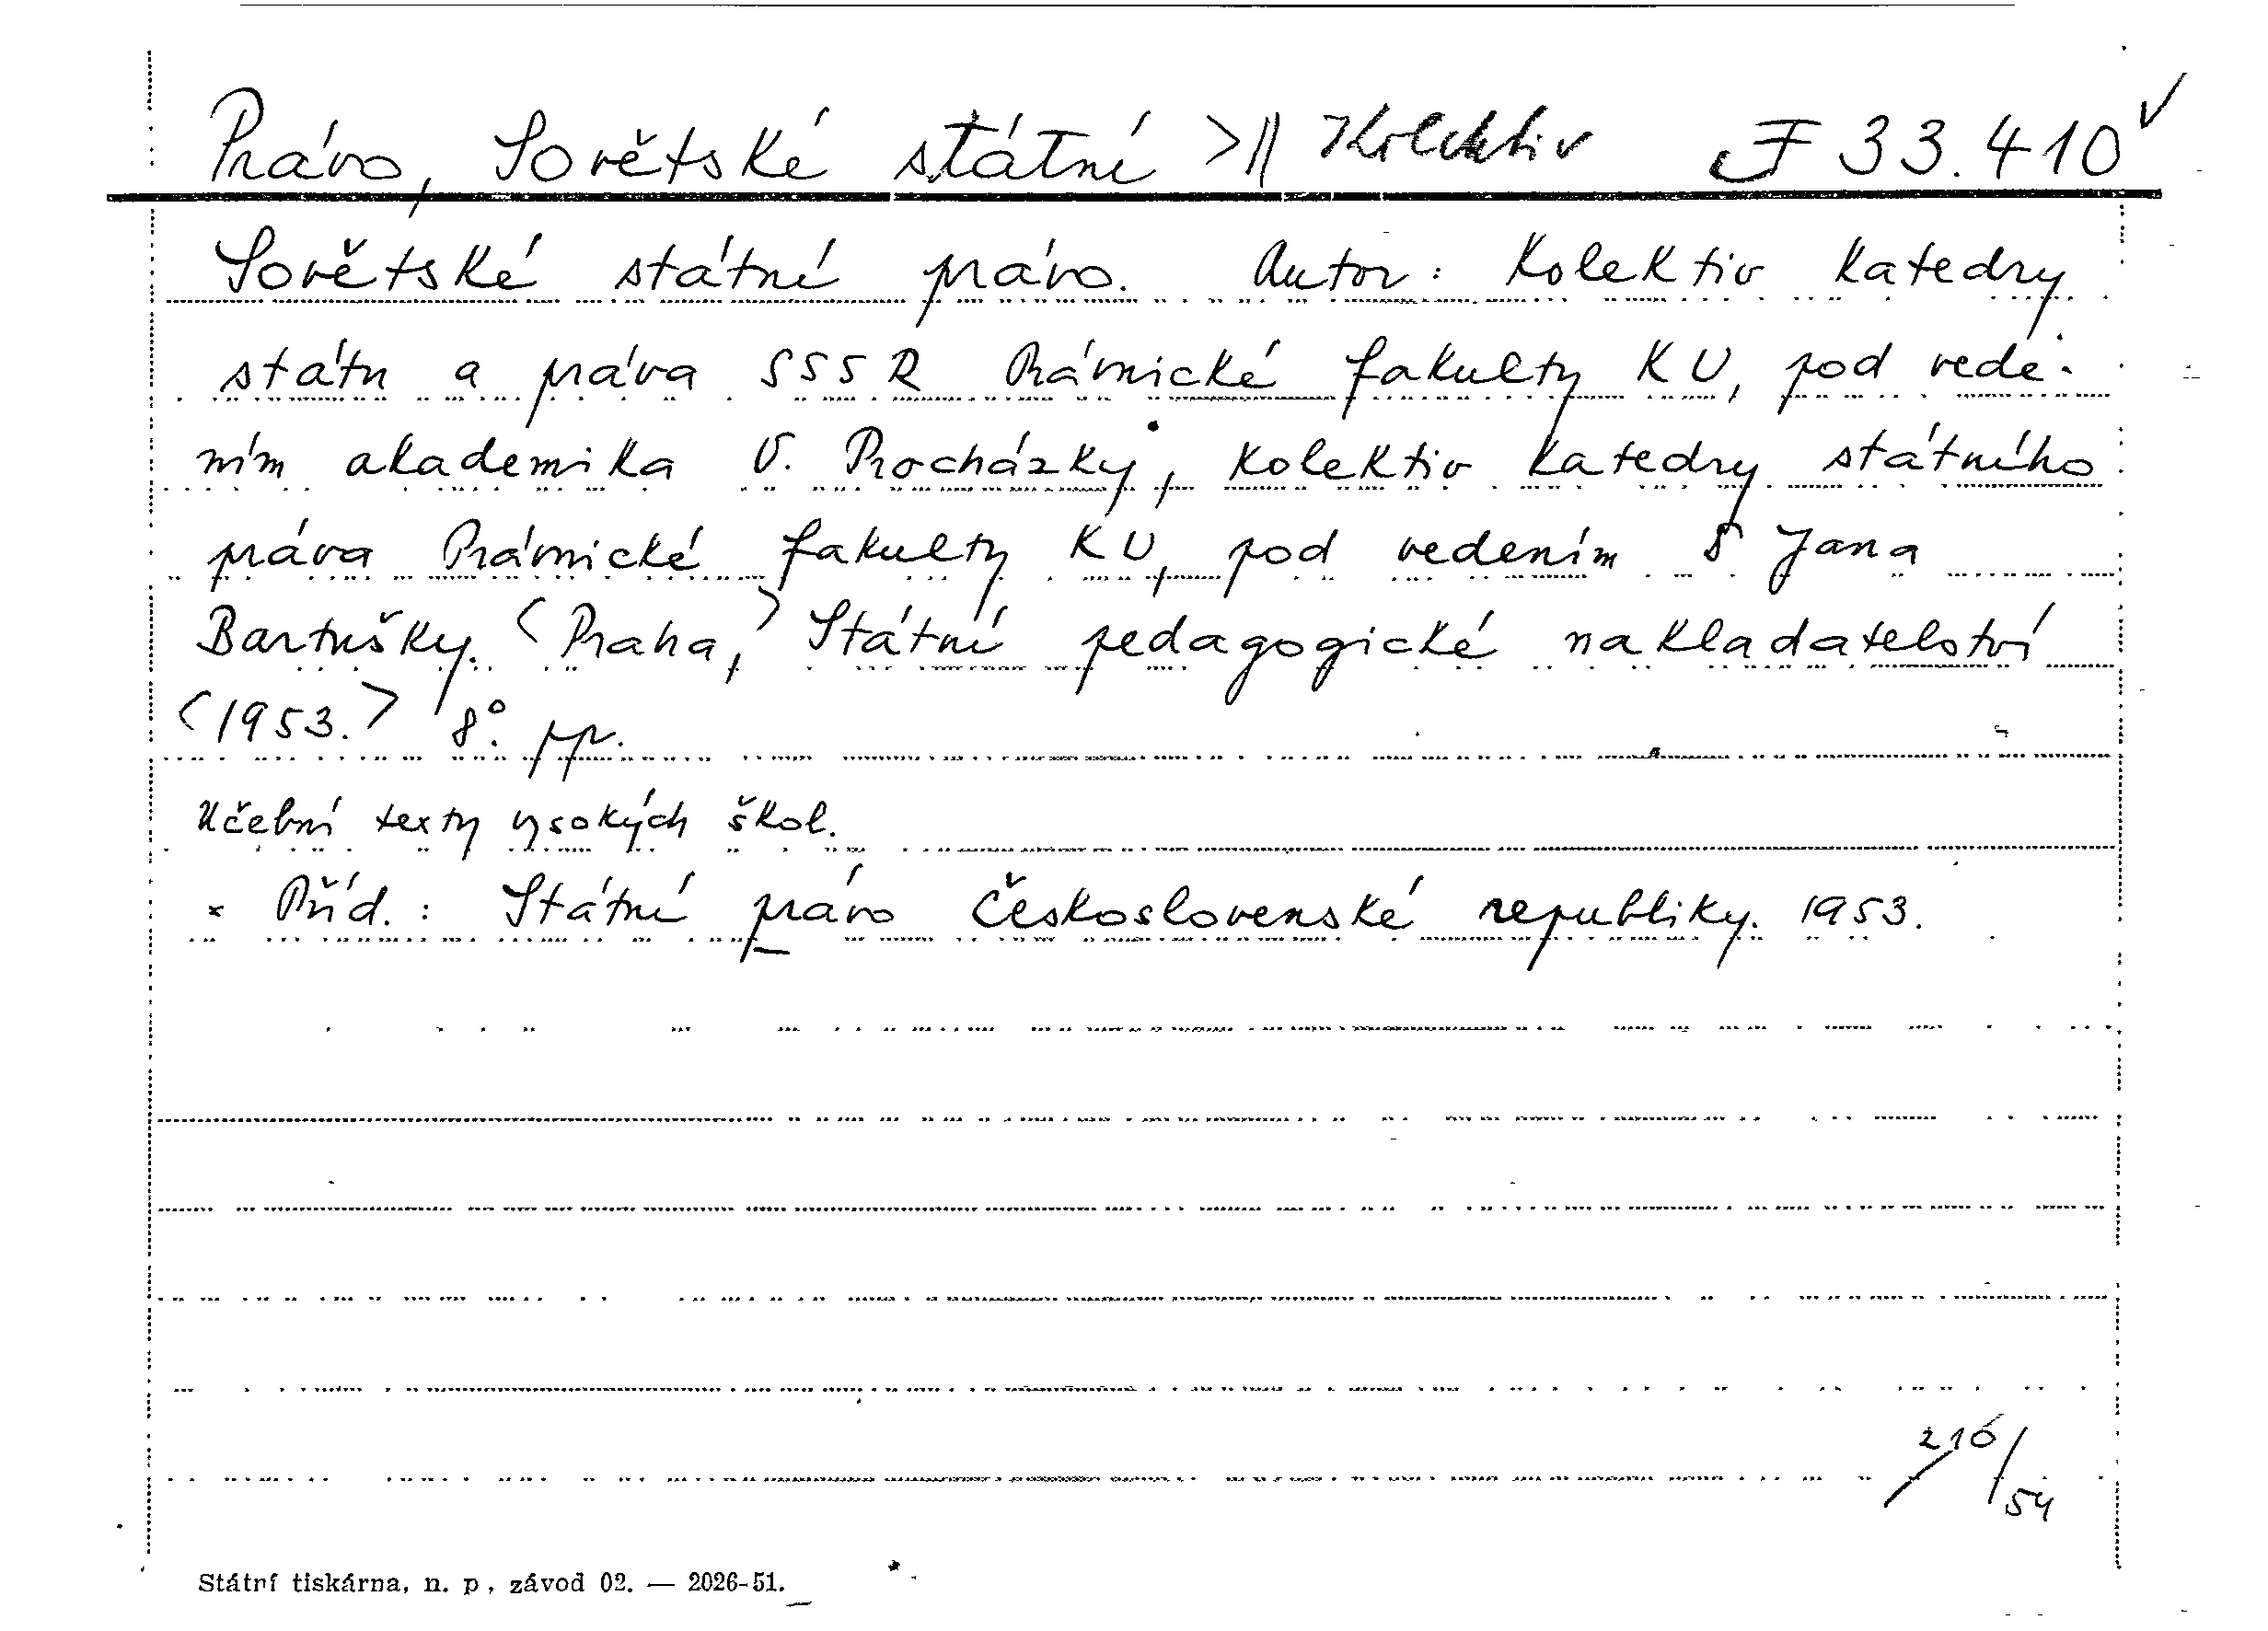 Právo, Sovětské státní >|| Kolektiv F 33.410
Sovětské státní právo. Autor: Kolektiv katedry
státu a práva SSSR Právnické fakulty KU, pod vede-
ním akademika V. Procházky, kolektiv katedry státního
práva Právnické fakulty KU, pod vedením Jana
Bartušky. <Praha,> Státní pedagogické nakladatelství
<1953.> 8°. pp.
Učební texty vysokých škol.
× Příd.: Státní právo Československé republiky. 1953.
216/54
Státní tiskárna, n. p., závod 02. — 2026-51.